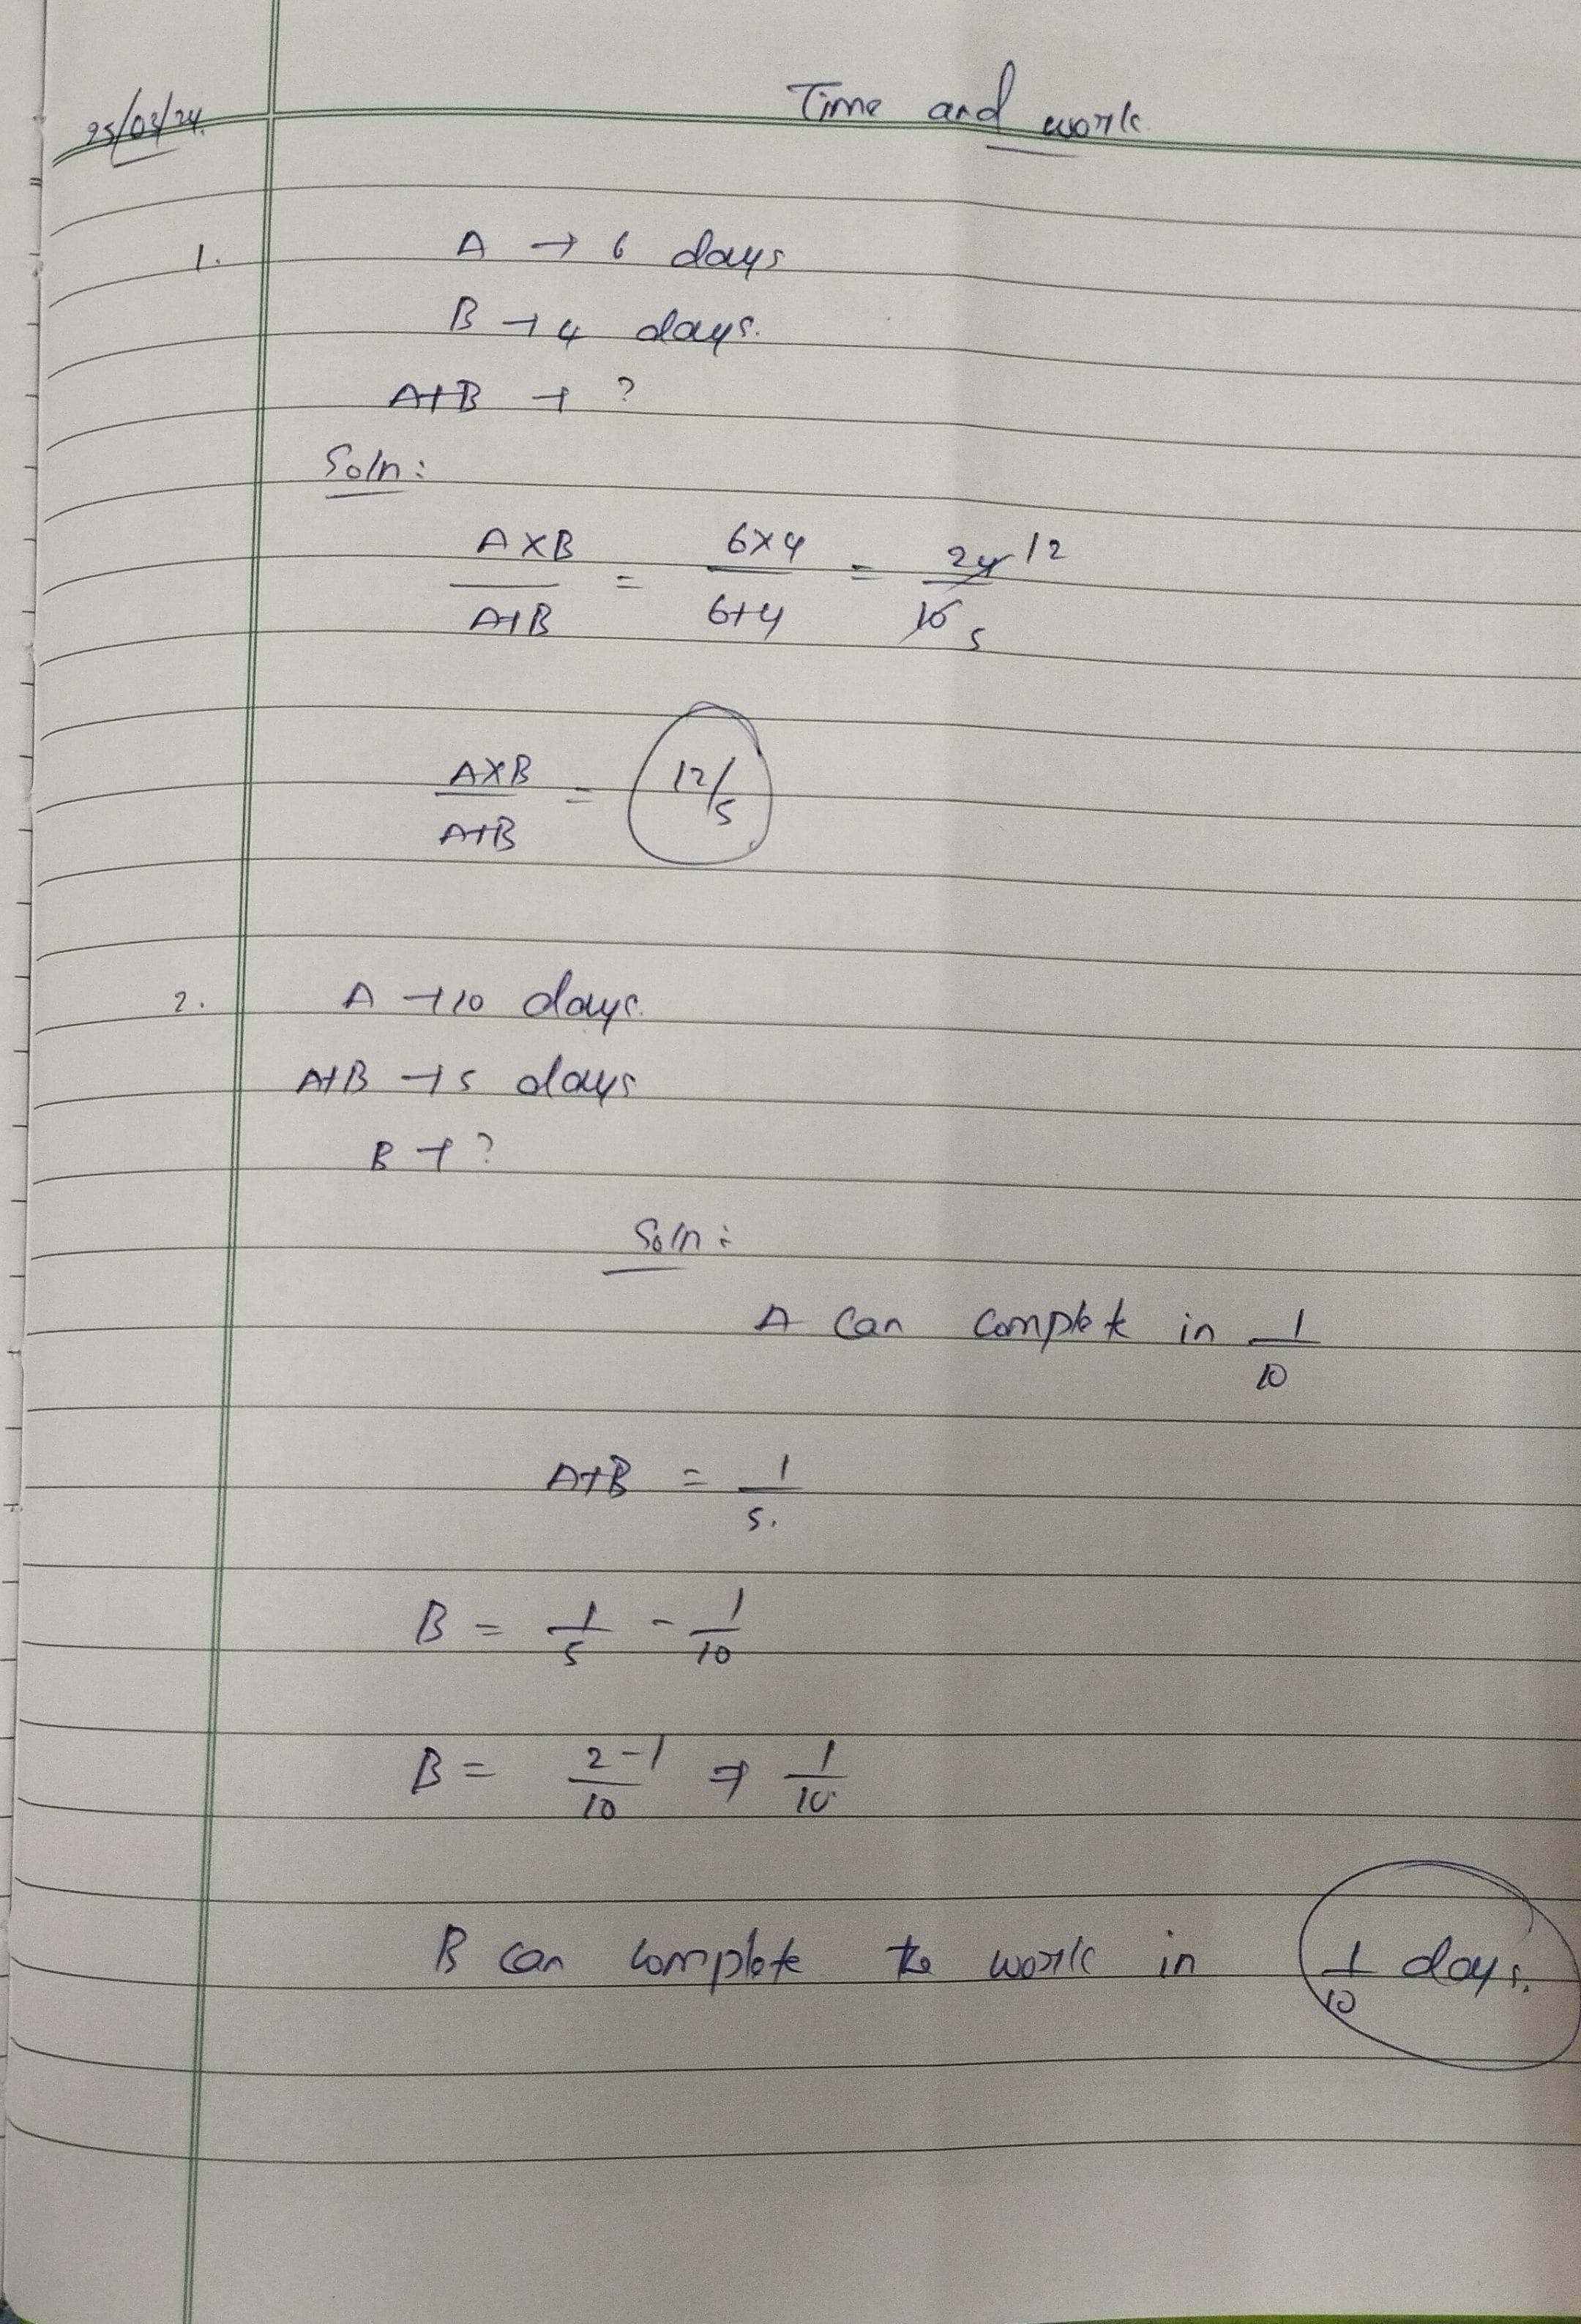 25/03/24
Time and work.
1. A → 6 days
B → 4 days.
A+B → ?
Soln:
A×B / A+B = 6×4 / 6+4 = 24 12 / 10 5
A×B / A+B = 12/5
2. A → 10 days.
A+B → 5 days
B → ?
Soln:
A can complete in 1/10
A+B = 1/5.
B = 1/5 - 1/10
B = 2-1/10 ⇒ 1/10
B can complete the work in 1/10 days.